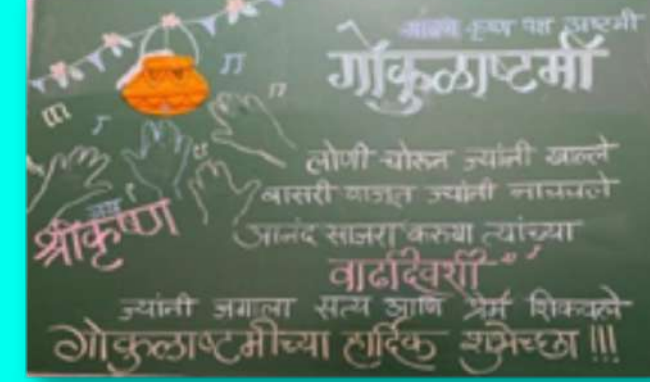 श्रावण कृष्ण पक्ष अष्टमी
गोकुळाष्टमी
लोणी चोरून ज्यांनी खाल्ले
बासरी वाजून ज्यांनी नाचवले
आनंद साजरा करूया त्यांच्या
वाढदिवशी
ज्यांनी जगाला सत्य आणि प्रेम शिकवले
गोकुळाष्टमीच्या हार्दिक शुभेच्छा !!!
जय
श्रीकृष्ण